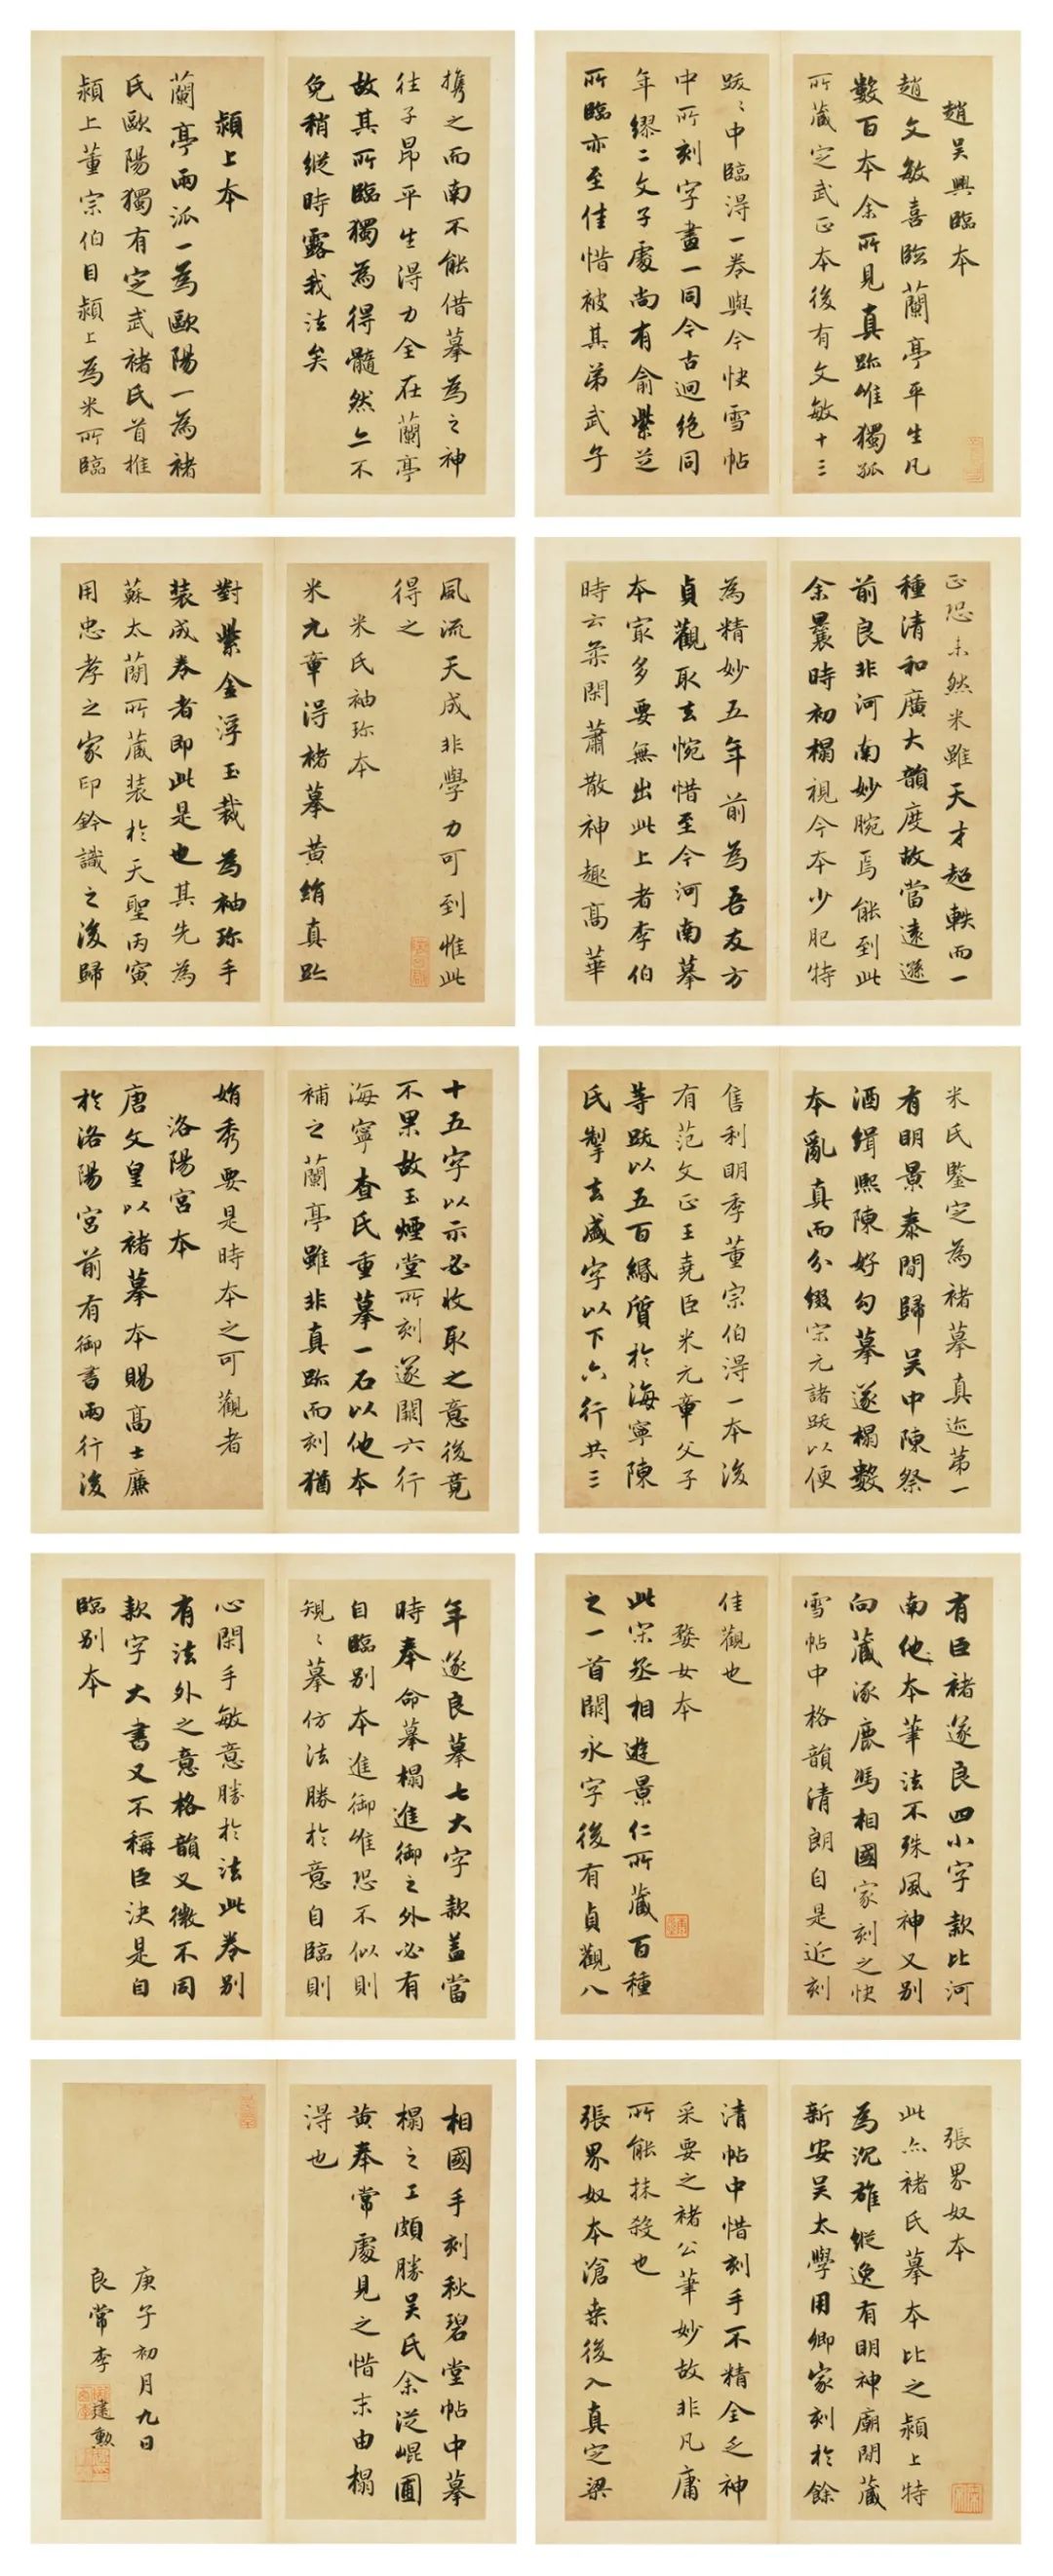 趙吳興臨本
趙文敏喜臨蘭亭平生凡
數百本余所見真跡唯獨孤
所藏定武正本後有文敏十三
跋跋中臨得一卷與今快雪帖
中所刻字畫一同今古迥絶同
年繆二文子處尚有俞紫芝
所臨亦至佳惜被其弟武子
攜之而南不能借摹為之神
往子昂平生得力全在蘭亭
故其所臨獨為得髓然亦不
免稍縱時露我法矣
潁上本
蘭亭兩派一為歐陽一為褚
氏歐陽獨有定武褚氏首推
潁上董宗伯目潁上為米所臨
正恐未然米雖天才超軼而一
種清和廣大韻度故當遠遜
前良非河南妙腕焉能到此
余曩時初榻視今本少肥特
為精妙五年前為吾友方
貞觀取去惋惜至今河南摹
本宷多要無出此上者李伯
時云柔閑蕭散神趣高華
風流天成非學力可到惟此
得之
米氏袖珍本
米元章得褚摹黃絹真跡
對紫金浮玉裁為袖珍手
裝成卷者即此是也其先為
蘇太簡所藏裝於天聖丙寅
用忠孝之家印鈐識之後歸
米氏鑒定為褚摹真迹第一
有明景泰間歸吳中陳祭
酒緝熙陳好勾摹遂榻數
本亂真而分綴宋元諸跋以便
售利明季董宗伯得一本後
有范文正王堯臣米元章父子
等跋以五百緡質於海寧陳
氏掣去盛字以下六行共三
十五字以示必收取之意後竟
不果故玉煙堂所刻遂闕六行
海寧查氏重摹一石以他本
補之蘭亭雖非真跡而刻猶
娟秀要是時本之可觀者
洛陽宮本
唐文皇以褚摹本賜高士廉
於洛陽宮前有御書兩行後
有臣褚遂良四小字款比河
南他本筆法不殊風神又別
向藏涿鹿馮相國家刻之快
雪帖中格韻清朗自是近刻
佳觀也
婺女本
此宋丞相遊景仁所藏百種
之一首闕永字後有貞觀八
年遂良摹七大字款蓋當
時奉命摹榻進御之外必有
自臨別本進御唯恐不似則
規規摹仿法勝於意自臨則
心閑手敏意勝於法此卷別
有法外之意格韻又微不同
款字大書又不稱臣決是自
臨別本
張界奴本
此亦褚氏摹本比之潁上特
為沉雄縱逸有明神廟間藏
新安吳太學用卿家刻於餘
清帖中惜刻手不精全乏神
采要之褚公筆妙故非凡庸
所能抹殺也
張界奴本滄桑後入真定梁
相國手刻秋碧堂帖中摹
榻之工頗勝吳氏余從崐圃
黃奉常處見之惜未由榻
得也
庚子初月九日
良常李建勲